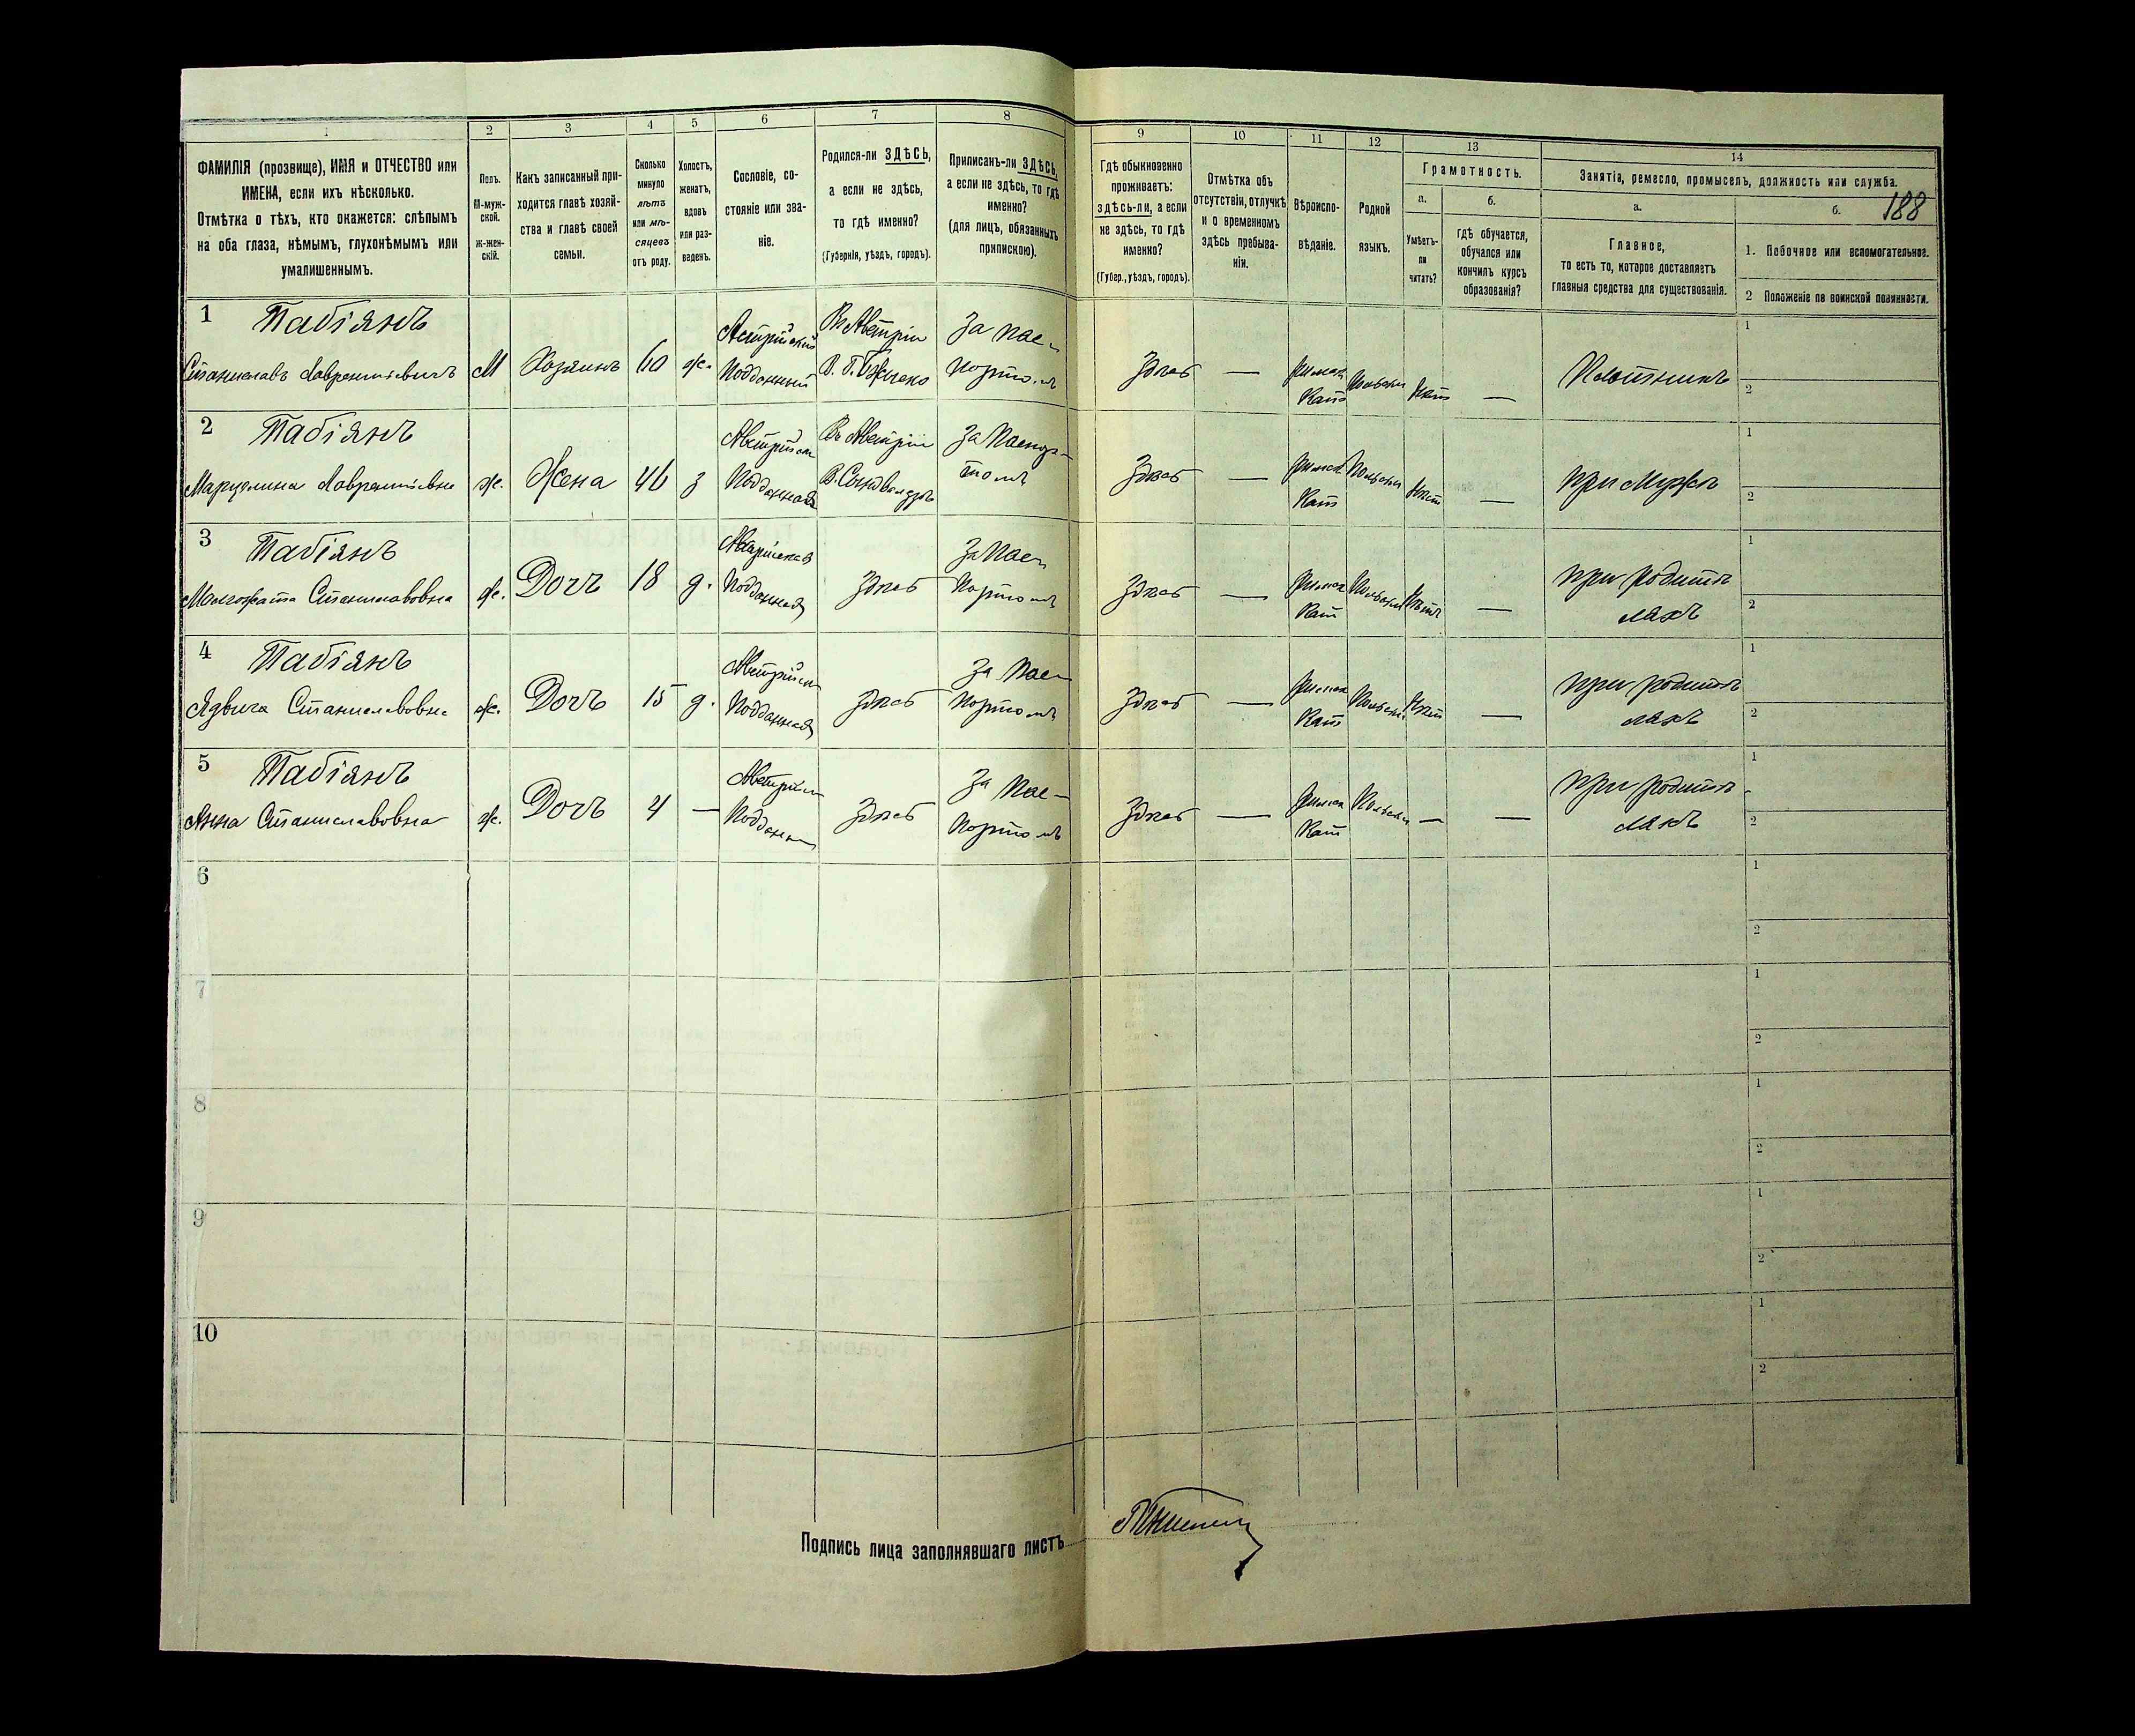 1 2 3 4 5 6 7 8 9 10 11 12 13 14
188
ФАМИЛІЯ (прозвище), ИМЯ и ОТЧЕСТВО или
ИМЕНА, если ихъ нѣсколько.
Отмѣтка о тѣхъ, кто окажется: слѣпымъ
на оба глаза, нѣмымъ, глухонѣмымъ или
умалишеннымъ.
Полъ.
М-муж-
ской.
Ж-жен-
скій.
Какъ записанный при-
ходится главѣ хозяй-
ства и главѣ своей
семьи.
Сколько
минуло
лѣтъ
или мѣ-
сяцевъ
отъ роду.
Холостъ,
женатъ,
вдовъ
или раз-
веденъ.
Сословіе, со-
стояніе или зва-
ніе.
Родился-ли ЗДѢСЬ,
а если не здѣсь,
то гдѣ именно?
(Губернія, уѣздъ, городъ).
Приписанъ-ли ЗДѢСЬ,
а если не здѣсь, то гдѣ
именно?
(для лицъ, обязанныхъ
припискою).
Гдѣ обыкновенно
проживаетъ:
здѣсь-ли, а если
не здѣсь, то гдѣ
именно?
(Губер., уѣздъ, городъ).
Отмѣтка объ
отсутствіи, отлучкѣ
и о временномъ
здѣсь пребыва-
ніи.
Вѣроиспо-
вѣданіе.
Родной
языкъ.
Грамотность.
а.
Умѣетъ-
ли
читать?
б.
гдѣ обучается,
обучался или
кончилъ курсъ
образованія?
Занятія, ремесло, промыселъ, должность или служба.
а.
Главное,
то есть то, которое доставляетъ
главныя средства для существованія.
б.
1. Побочное или вспомогательное.
2 Положеніе по воинской повинности.
1 Пабіянъ
Станиславъ Лаврентіевичъ М Хозяинъ 60 ж.
Подданный
Въ Австріи
За пас-
портомъ
Здѣсь —
Римск
Кат
Польскій Нѣтъ —
1
2
2 Пабіянъ
Марцелина Лаврентіевна ж. Жена 46 з
Австрійск
Подданная
Въ Австріи
За Паспор-
томъ
Здѣсь —
Римск
Кат
Польскій Нѣтъ —
при Мужѣ
1
2
3 Пабіянъ
Малгожата Станиславовна ж. Дочь 18 д.
Подданная
Здѣсь
За Пас-
портомъ
Здѣсь —
Римск
Кат
Польскій Нѣтъ —
при родите
ляхъ
1
2
4 Пабіянъ
Ядвига Станиславовна ж. Дочь 15 д.
Австрійск
Подданная
Здѣсь
За Пас-
портомъ
Здѣсь —
Римск
Кат
Польскій Нѣтъ —
при родите
ляхъ
1
2
5 Пабіянъ
Анна Станиславовна ж. Дочь 4 —
Австрійск
Поддан
Здѣсь
За Пас-
портомъ
Здѣсь —
Римск
Кат
Польскій — —
при родите-
ляхъ
1
2
6
1
2
7
1
2
8
1
2
9
1
2
10
1
2
Подпись лица заполнявшаго листъ